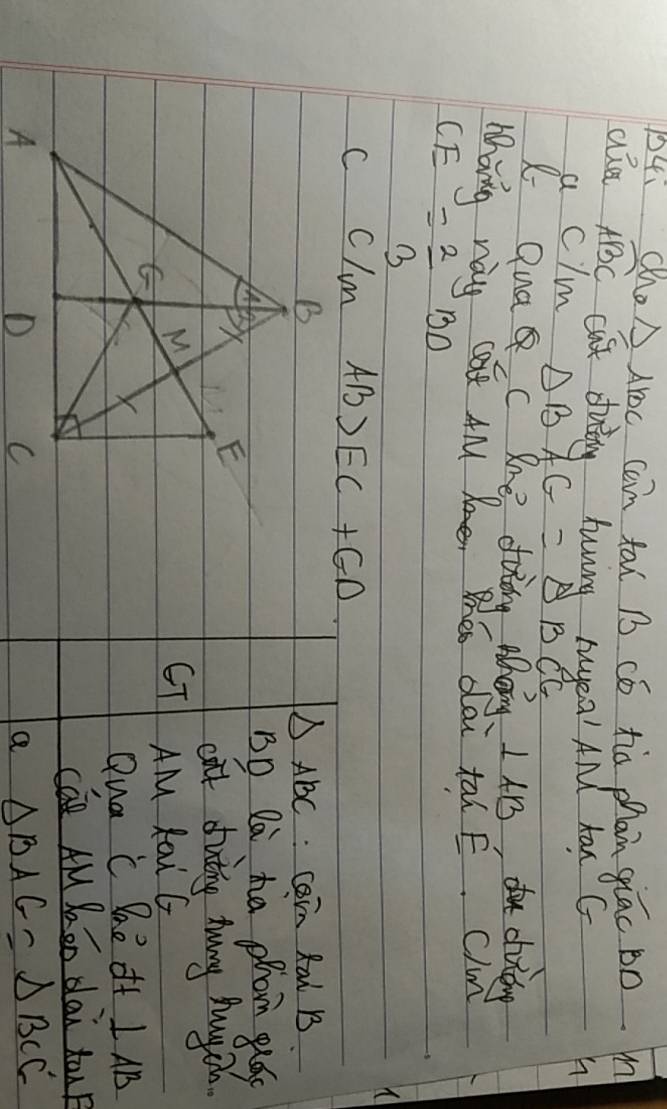 B4: Cho Δ ABC cân tại B có tia phân giác BD
của ABC cắt đường trung tuyến AM tại G
a C/m Δ BAG = Δ BCG
b- Qua C kẻ đường thẳng ⊥ AB, đường
thẳng này cắt AM kéo dài tại E. C/m
CE = 2/3 BD
C C/m AB > EC + GD
B
A
G
M
E
D
C
GT
Δ ABC: cân tại B.
BD là tia phân giác
cắt đường trung tuyến
AM tại G
Qua C kẻ đt ⊥ AB
cắt AM kéo dài tại E
a Δ BAG = Δ BCG